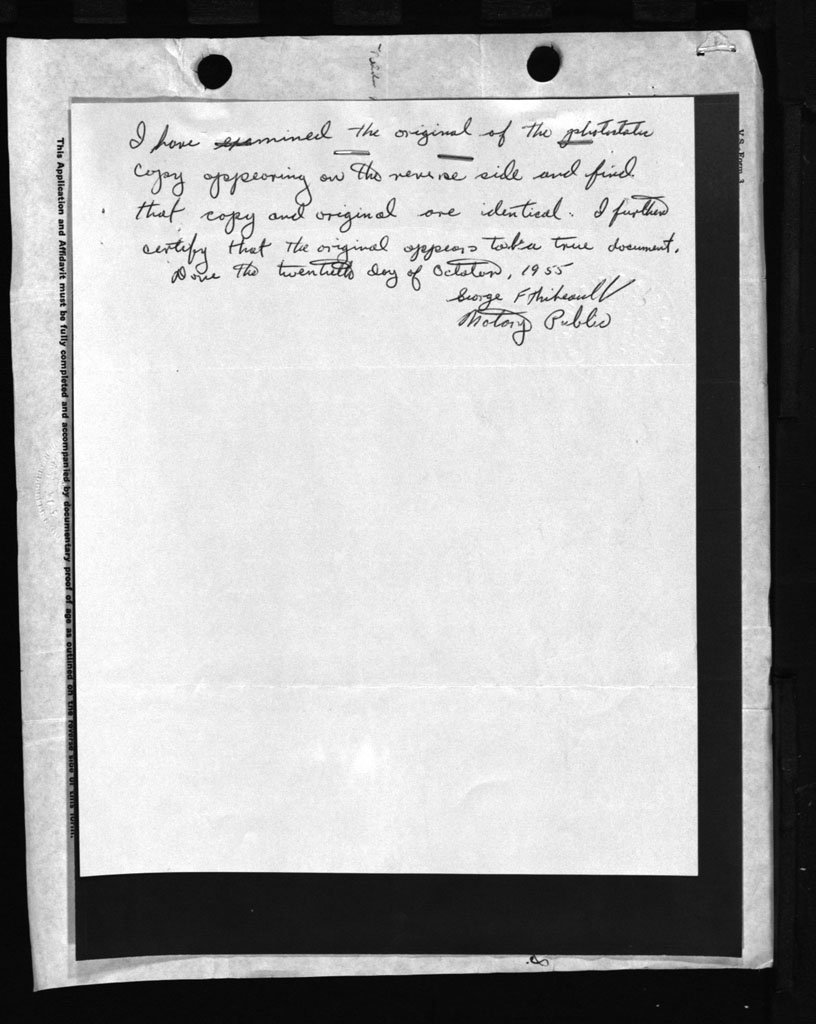 I have examined the original of the photostatic
copy appearing on the reverse side and find
that copy and original are identical. I further
certify that the original appears to be a true document.
Done the twentieth day of October, 1955
George F Thibeault
Notary Public
This Application and Affidavit must be fully completed and accompanied by documentary proof of age as outlined on the reverse side of this form.
V.S. Form 3